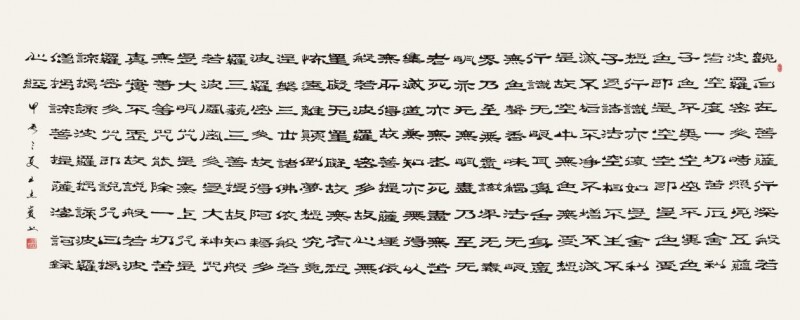 觀自在菩薩行深般若
波羅蜜多時照見五蘊
皆空度一切苦厄舍利
子色不異空空不異色
色即是空空即是色受
想行識亦復如是舍利
子是諸法空相不生不
滅不垢不淨不增不減
是故空中無色無受想
行識無眼耳鼻舌身意
無色聲香味觸法無眼
界乃至無意識界無無
明亦無無明盡乃至無
老死亦無老死盡無苦
集滅道無智亦無得以
無所得故菩提薩埵依
般若波羅蜜多故心無
罣礙無罣礙故無有恐
怖遠離顛倒夢想究竟
涅槃三世諸佛依般若
波羅蜜多故得阿耨多
羅三藐三菩提故知般
若波羅蜜多是大神咒
是大明咒是無上咒是
無等等咒能除一切苦
真實不虛故說般若波
羅蜜多咒即說咒曰揭
諦揭諦波羅揭諦波羅
僧揭諦菩提薩婆訶錄
心經 甲午之夏